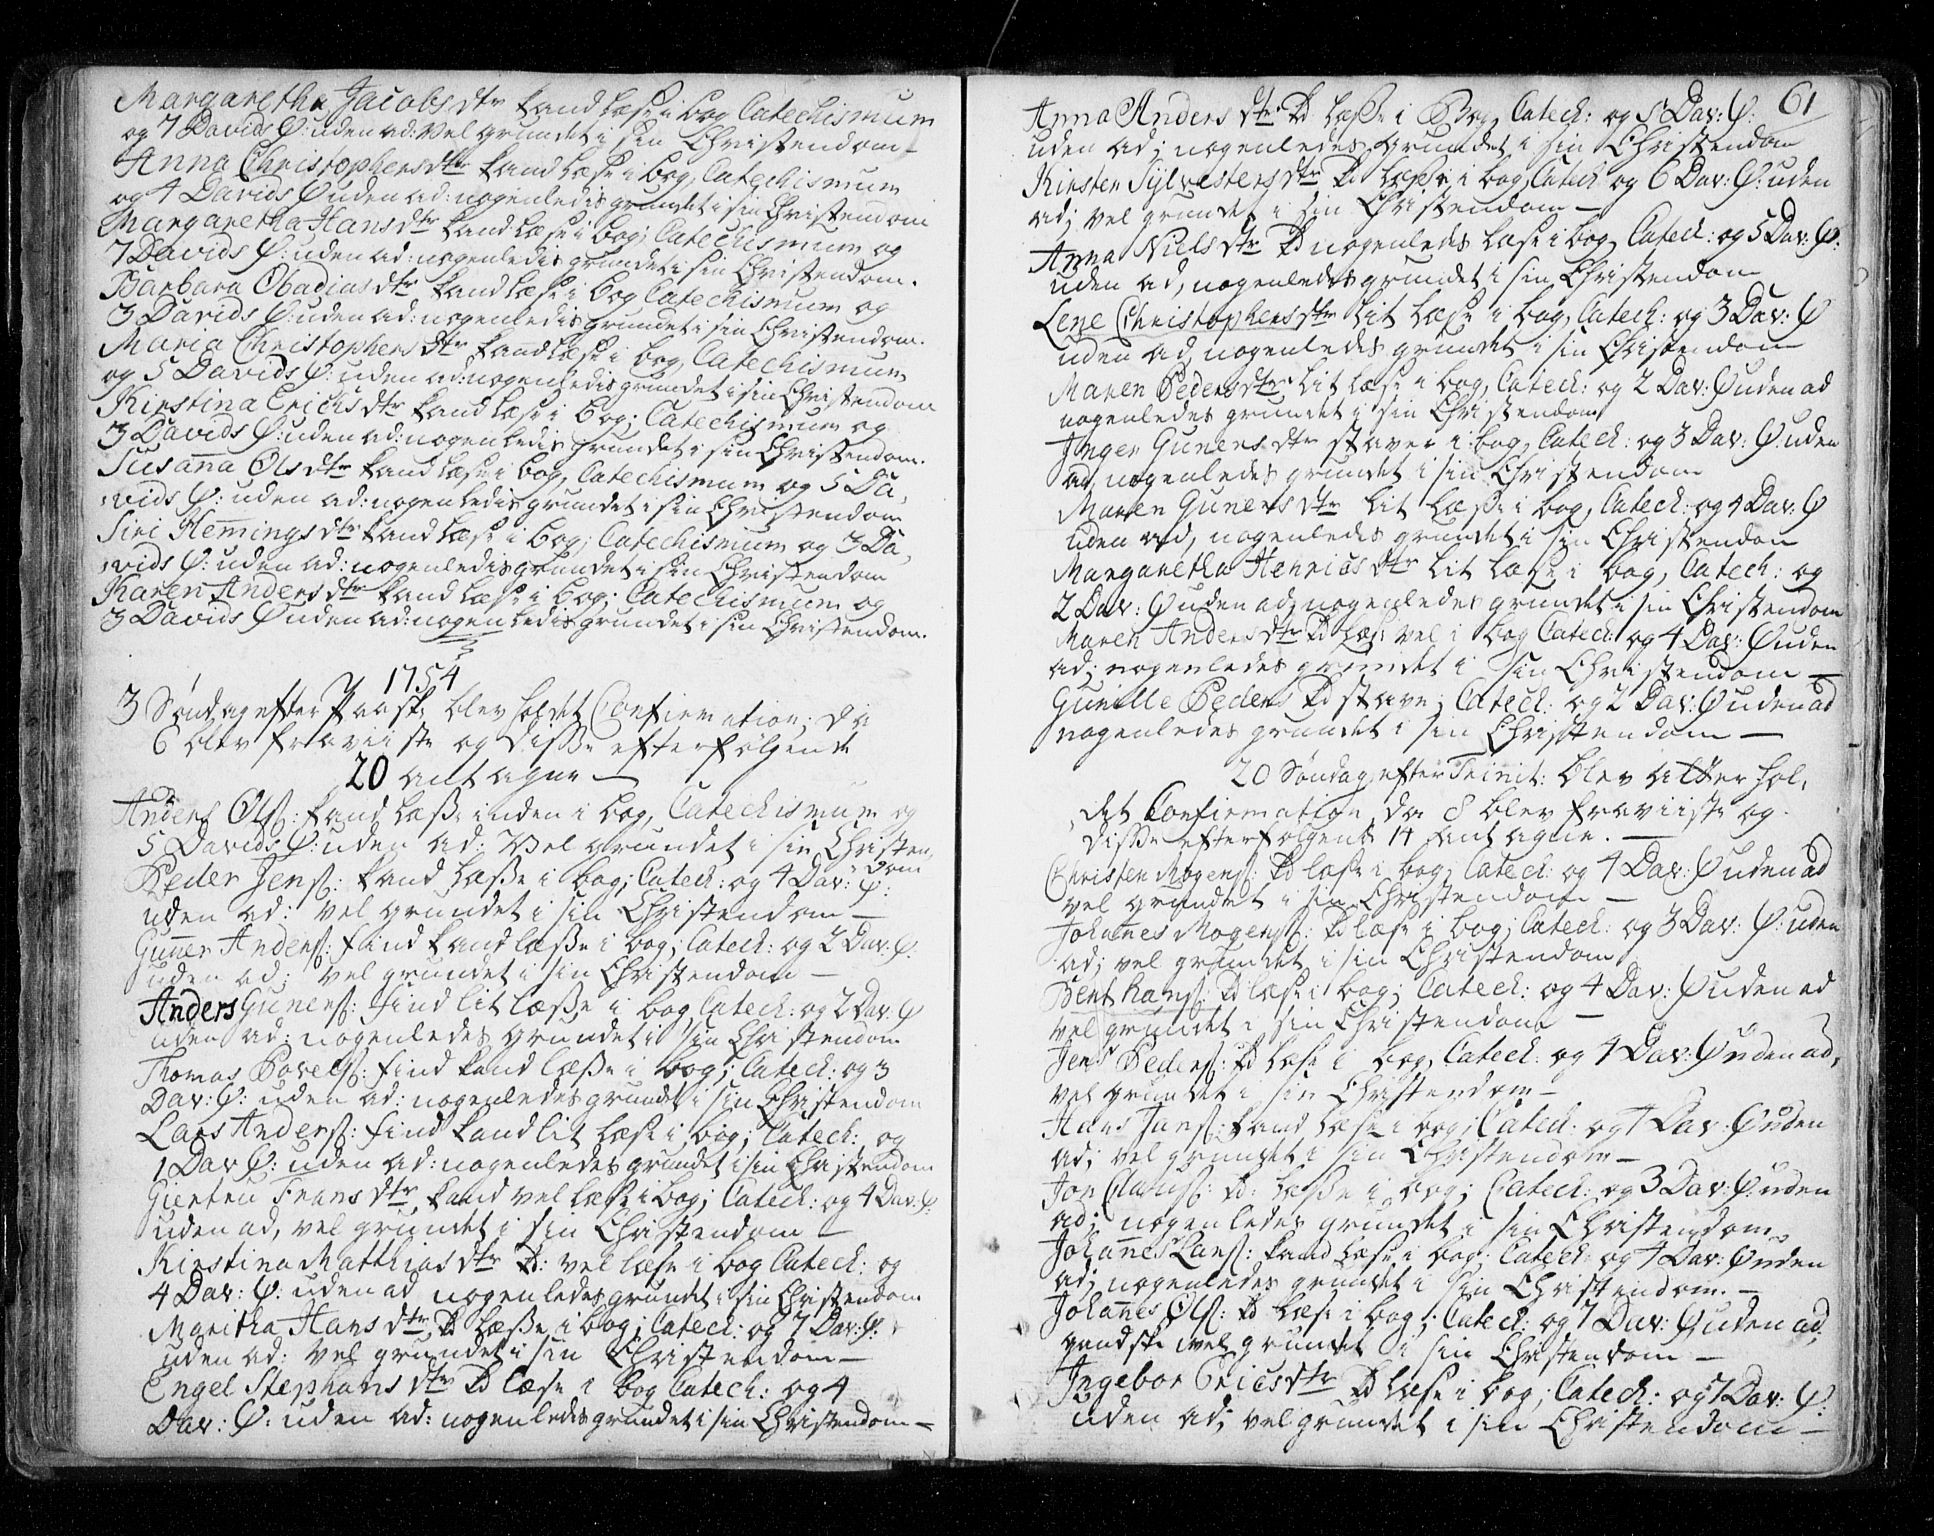 Margaretha Jacobsdtr kand læse i bog Catechismum
og 7 Davids Ψ: uden ad: vel grundet i sin Christendom
Anna Christophersdtr kand læse i bog, Catechismum
og 4 Davids Ψ uden ad: nogenledis grundet i sin Christendom
Margaretha Hansdtr kand læse i bog; Catechismum og
7 Davids Ψ: uden ad: nogenledis grundet i sin Christendom.
Barbara Obadiasdtr kand læse i bog Catechismum og
3 Davids Ψ: uden ad: nogenledis grundet i sin Christendom.
Maria Christophersdtr kand læse i bog, Catechismum
og 5 Davids Ψ: uden ad: nogenledis grundet i sin Christendom
Kirstina Erichsdtr kand læse i bog; Catechismum og
3 Davids Ψ: uden ad: nogenledis grundet i sin Christendom.
Susanna Olsdtr kand læse i bog, Catechismum og 5 Da,
,vids Ψ: uden ad: nogenledis grundet i sin Christendom
Siri Hemingsdtr kand læse i bog; Catechismum og 3 Da,
,vids Ψ: uden ad: nogenledis grundet i sin Christendom
Karen Andersdtr kand læse i bog; Catechismum og
3 Davids Ψ uden ad: nogenledis grundet i sin Christendom.
1754
3 Søndag efter Paaske blev holdet Confirmation; da
6 blev fraviiste og disse efterfølgende
20 antagne
Anders Olss: kand læsse inden i bog, Catechismum og
5 Davids Ψ: uden ad: Vel grundet i sin Christen,
dom
Peder Jenss: kand læsse i bog; Catech: og 4 Dav: Ψ:
uden ad: vel grundet i sin Christendom —
Guner Anderss: find kand læsse i bog; Catech: og 2 Dav: Ψ.
uden ad; vel grundet i sin Christendom —
Anders Guners: find lit læsse i bog Catech: og 2 Dav: Ψ
uden ad: nogenledes grundet i sin Christendom
Thomas Povelss: find kand læsse i bog; Catech: og 3
Dav: Ψ: uden ad: nogenledes grundet i sin Christendom
Lars Anderss: find kand lit læse i bog; Catech: og
1 Dav Ψ: uden ad: nogenledes grundet i sin Christendom
Giertru Fransdtr kand vel læse i bog; Catech: og 4 Dav: Ψ:
uden ad, vel grundet i sin Christendom —
Kirstina Matthiasdtr Kd: vel læse i bog Catech: og
4 Dav: Ψ: uden ad nogenledes grundet i sin Christendom
Maritha Hansdtr Kd læsse i bog; Catech: og 7 Dav: Ψ:
uden ad: vel grundet i sin Christendom —
Engel Stephansdtr Kd læse i bog Catech: og 4
Dav: Ψ: uden ad: nogenledes grundet i sin Christendom —
61
Anna Andersdtr Kd læsse i Bog, Catech: og 5 Dav: Ψ:
uden ad; nogenledes grundet i sin Christendom
Kirsten Sylvestersdtr Kd læsse i bog Catech og 6 Dav: Ψ: uden
ad; vel grundet i sin Christendom —
Anna Nielsdtr Kd nogenledes læse i bog, Catech: og 5 Dav: Ψ:
uden ad, nogenledes grundet i sin Christendom
Lene Christophersdtr lit læse i bog, Catech: og 3 Dav: Ψ
uden ad, nogenledes grundet i sin Christendom
Maren Pedersdtr lit læse i bog, Catech: og 2 Dav: Ψ uden ad
nogenledes grundet i sin Christendom
Inger Gunersdtr staver i bog, Catech: og 3 Dav: Ψ: uden
ad, nogenledes grundet i sin Christendom
Maren Gunersdtr lit læsse i bog, Catech: og 4 Dav: Ψ
uden ad, nogenledes grundet i sin Christendom
Margaretha Henricsdtr lit læse i bog, Catech: og
2 Dav: Ψ uden ad; nogenledes grundet i sin Christendom
Maren Andersdtr Kd læse vel i bog Catech: og 4 Dav: Ψ uden
ad; nogenledes grundet i sin Christendom —
Gunille Peders Kd stave; Catech: og 2 Dav: Ψ uden ad
nogenledes grundet i sin Christendom —
20 Søndag efter Trinit: blev atter hol,
,det Confirmation, da 8 blev fraviiste og
disse efterfølgende 14 antagne. —
Christen Mogenss: Kd læse i bog, Catech: og 4 Dav: Ψ uden ad
vel grundet i sin Christendom —
Johannes Mogenss: Kd læse i bog; Catech: og 3 Dav: Ψ: uden
ad; vel grundet i sin Christendom
Bent Hanss: Kd læse i bog; Catech: og 4 Dav: Ψ uden ad
vel grundet i sin Christendom —
Jens Pederss: Kd læse i bog, Catech: og 4 Dav: Ψ uden ad,
vel grundet i sin Christendom —
Hans Janss: kand læse i bog; Catech: og 4 Dav: Ψ uden
ad; vel grundet i sin Christendom —
Jon Clauss: Kd: læsse i bog; Catech: og 3 Dav: Ψ: uden
ad; nogenledes grundet i sin Christendom
Johannes Larss: kand læse i bog; Catech: og 4 Dav: Ψ uden
ad; nogenledes grundet i sin Christendom. —
Johannes Olss: Kd læse i bog; Catech: og 7 Dav: Ψ uden ad
gandske vel grundet i sin Christendom —
Ingebor Ericsdtr Kd læse i bog; Catech: og 7 Dav: Ψ:
uden ad; vel grundet i sin Christendom —